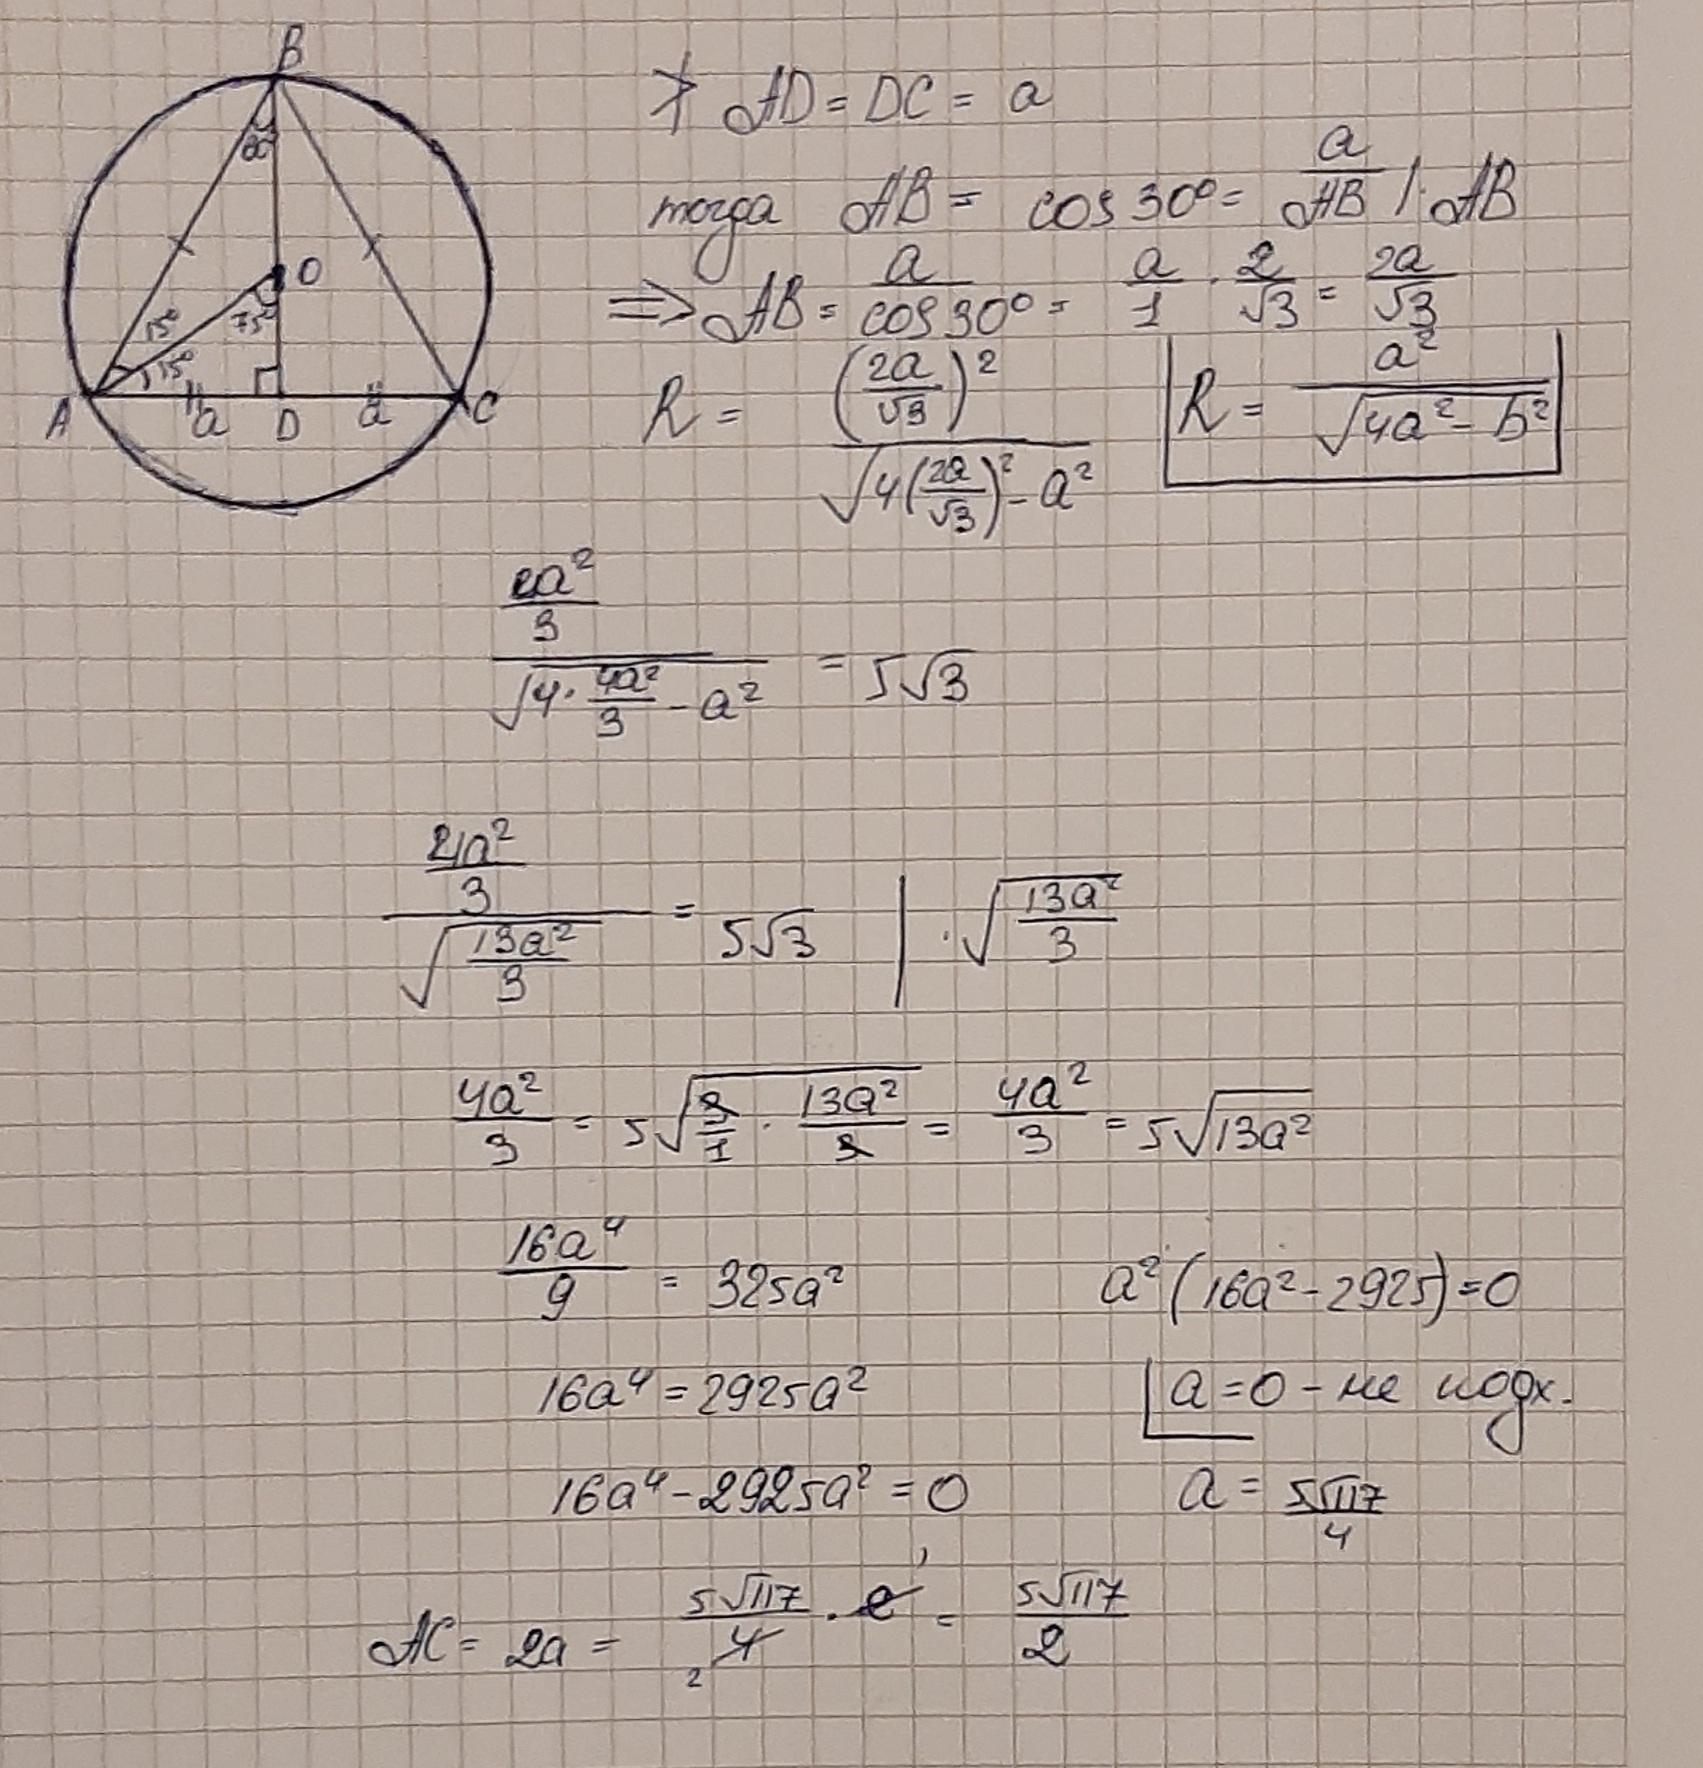 B
60°
O
15°
75°
15°
A a D a C
AD = DC = a
тогда AB = cos 30° = a/AB | · AB
⇒ AB = a/cos 30° = a/1 · 2/√3 = 2a/√3
R = (2a/√3)² / √(4(2a/√3)² - a²)
R = a² / √(4a² - b²)
(2a²/3) / √(4 · 4a²/3 - a²) = 5√3
(4a²/3) / √(13a²/3) = 5√3 | · √(13a²/3)
4a²/3 = 5√(3/1 · 13a²/3) = 4a²/3 = 5√(13a²)
16a⁴/9 = 325a²
a²(16a² - 2925) = 0
16a⁴ = 2925a²
a = 0 - не подх.
16a⁴ - 2925a² = 0
a = 5√117/4
AC = 2a = 5√117/4 · 2 = 5√117/2